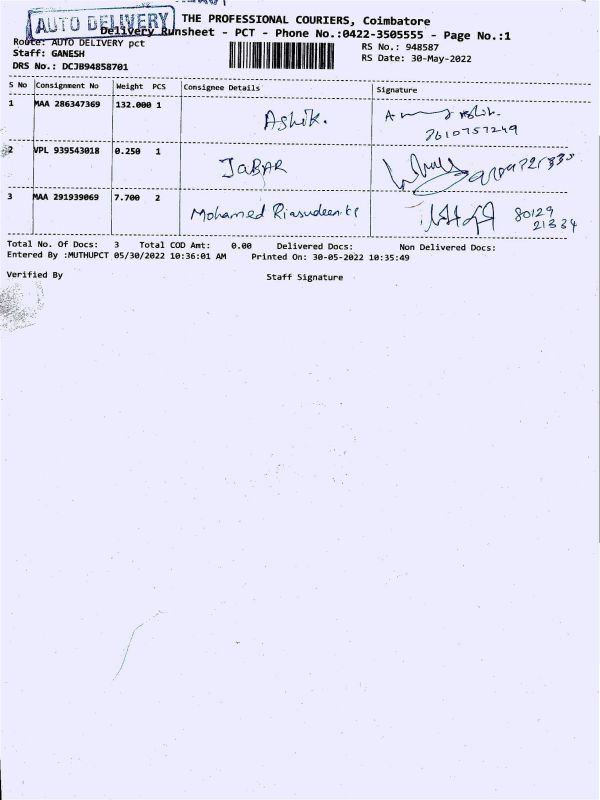 AUTO DELIVERY
THE PROFESSIONAL COURIERS, Coimbatore
Delivery Runsheet - PCT - Phone No.:0422-3505555 - Page No.:1
Route: AUTO DELIVERY pct
RS No.: 948587
Staff: GANESH
RS Date: 30-May-2022
DRS No.: DCJB94858701
S No Consignment No Weight PCS Consignee Details Signature
1 MAA 286347369 132.000 1 Ashik.
7610757249
2 VPL 939543018 0.250 1 JABAR
3 MAA 291939069 7.700 2 Mohamed 80129
21334
Total No. Of Docs: 3 Total COD Amt: 0.00 Delivered Docs: Non Delivered Docs:
Entered By :MUTHUPCT 05/30/2022 10:36:01 AM Printed On: 30-05-2022 10:35:49
Verified By Staff Signature